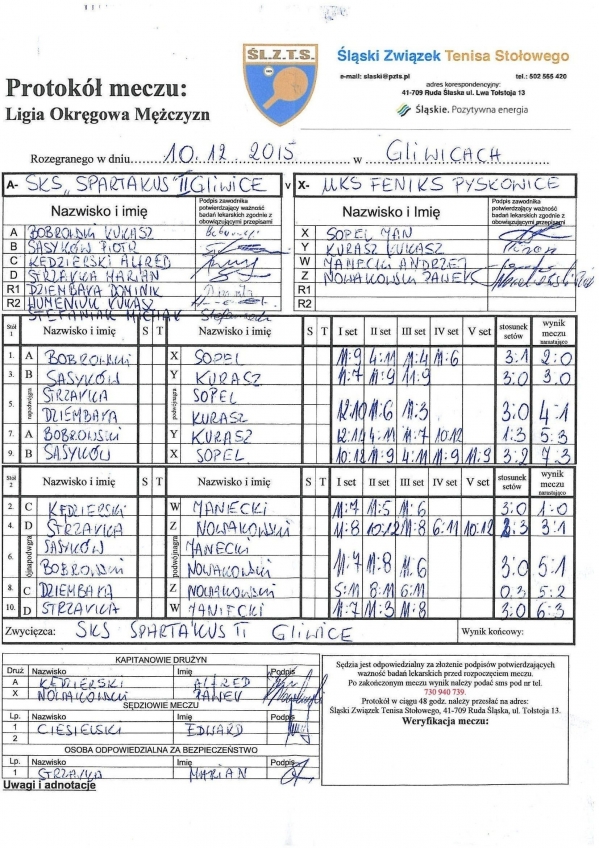 Ś.L.Z.T.S.
Śląski Związek Tenisa Stołowego
e-mail: slaski@pzts.pl tel.: 502 565 420
adres korespondencyjny:
41-709 Ruda Śląska ul. Lwa Tołstoja 13
Śląskie. Pozytywna energia
Protokół meczu:
Ligia Okręgowa Mężczyzn
Rozegranego w dniu 10.12.2015 w GLIWICACH
A- SKS „SPARTAKUS" II GLIWICE v X- UKS FENIKS PYSKOWICE
Nazwisko i imię Podpis zawodnika potwierdzający ważność badań lekarskich zgodnie z obowiązującymi przepisami Nazwisko i Imię Podpis zawodnika potwierdzający ważność badań lekarskich zgodnie z obowiązującymi przepisami
A BOBROWSKI ŁUKASZ X SOPEL JAN
B SASYKÓW PIOTR Y KURASZ ŁUKASZ
C KĘDZIERSKI ALFRED W JANECKI ANDRZEJ
D STRZAVKA MARIAN Z NOWAKOWSKI PAWEŁ
R1 DZIEMBAYA DOMINIK R1
R2 HUMENIUK ŁUKASZ R2
STEFANIAK MICHAŁ
Stół 1 Nazwisko i imię S T Nazwisko i imię S T I set II set III set IV set V set stosunek setów wynik meczu narastająco
1. A BOBROWSKI X SOPEL 11:9 4:11 11:4 11:6 3:1 2:0
3. B SASYKÓW Y KURASZ 11:7 11:9 11:9 3:0 3:0
5. STRZAVKA SOPEL
DZIEMBAYA KURASZ 12:10 11:6 11:3 3:0 4:1
7. A BOBROWSKI Y KURASZ 12:14 4:11 11:7 10:12 1:3 5:3
9. B SASYKÓW X SOPEL 10:12 11:9 4:11 11:9 11:9 3:2 7:3
Stół 2 Nazwisko i imię S T Nazwisko i imię S T I set II set III set IV set V set stosunek setów wynik meczu narastająco
2. C KĘDZIERSKI W JANECKI 11:7 11:5 11:6 3:0 1:0
4. D STRZAVKA Z NOWAKOWSKI 11:8 10:12 11:8 6:11 10:12 2:3 3:1
6. SASYKÓW JANECKI
BOBROWSKI NOWAKOWSKI 11:7 11:8 11:6 3:0 5:1
8. C DZIEMBAYA Z NOWAKOWSKI 5:11 8:11 6:11 0:3 5:2
10. D STRZAVKA W JANECKI 11:7 11:3 11:8 3:0 6:3
Zwycięzca: SKS SPARTAKUS II GLIWICE Wynik końcowy:
KAPITANOWIE DRUŻYN
Druż Nazwisko Imię Podpis
A KĘDZIERSKI ALFRED
X NOWAKOWSKI PAWEŁ
SĘDZIOWIE MECZU
Lp. Nazwisko Imię Podpis
1 CIESIELSKI EDWARD
2
OSOBA ODPOWIEDZIALNA ZA BEZPIECZEŃSTWO
Lp. Nazwisko Imię Podpis
1 STRZAVKA MARIAN
Uwagi i adnotacje
Sędzia jest odpowiedzialny za złożenie podpisów potwierdzających
ważność badań lekarskich przed rozpoczęciem meczu.
Po zakończonym meczu wynik należy podać sms pod nr tel.
730 940 739.
Protokół w ciągu 48 godz. należy przesłać na adres:
Śląski Związek Tenisa Stołowego, 41-709 Ruda Śląska, ul. Tołstoja 13.
Weryfikacja meczu: